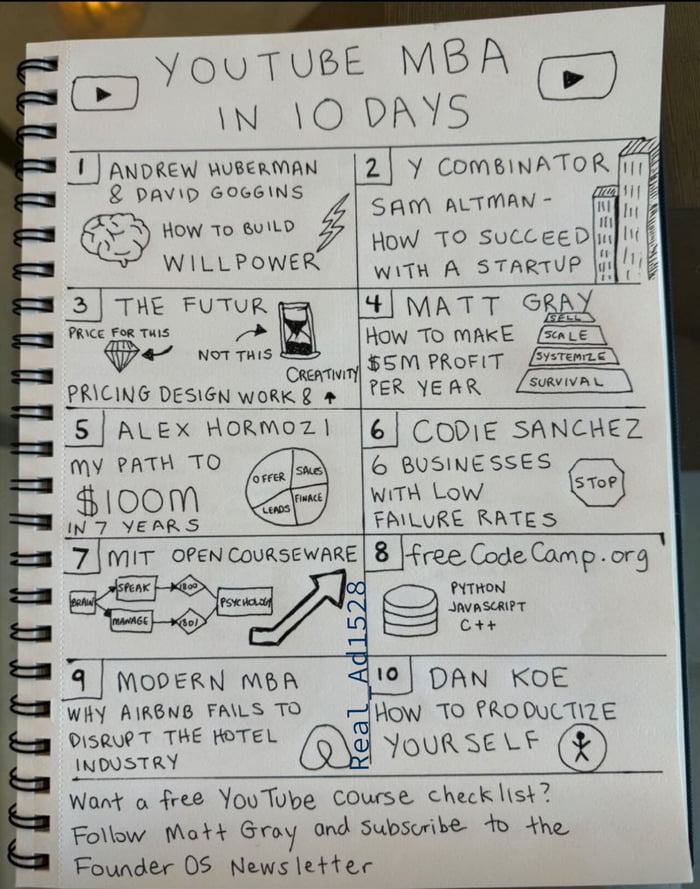 YOUTUBE MBA
IN 10 DAYS
1 ANDREW HUBERMAN
& DAVID GOGGINS
HOW TO BUILD
WILLPOWER
2 Y COMBINATOR
SAM ALTMAN -
HOW TO SUCCEED
WITH A STARTUP
3 THE FUTUR
PRICE FOR THIS
NOT THIS
CREATIVITY
PRICING DESIGN WORK &
4 MATT GRAY
HOW TO MAKE
$5M PROFIT
PER YEAR
SELL
SCALE
SYSTEMIZE
SURVIVAL
5 ALEX HORMOZI
MY PATH TO
$100M
IN 7 YEARS
OFFER
SALES
LEADS
FINACE
6 CODIE SANCHEZ
6 BUSINESSES
WITH LOW
FAILURE RATES
STOP
7 MIT OPENCOURSEWARE
BRAIN
SPEAK
1800
MANAGE
1801
PSYCHOLOGY
8 freeCodeCamp.org
PYTHON
JAVASCRIPT
C++
9 MODERN MBA
WHY AIRBNB FAILS TO
DISRUPT THE HOTEL
INDUSTRY
10 DAN KOE
HOW TO PRODUCTIZE
YOURSELF
Real_Ad1528
Want a free YouTube course checklist?
Follow Matt Gray and subscribe to the
Founder OS Newsletter